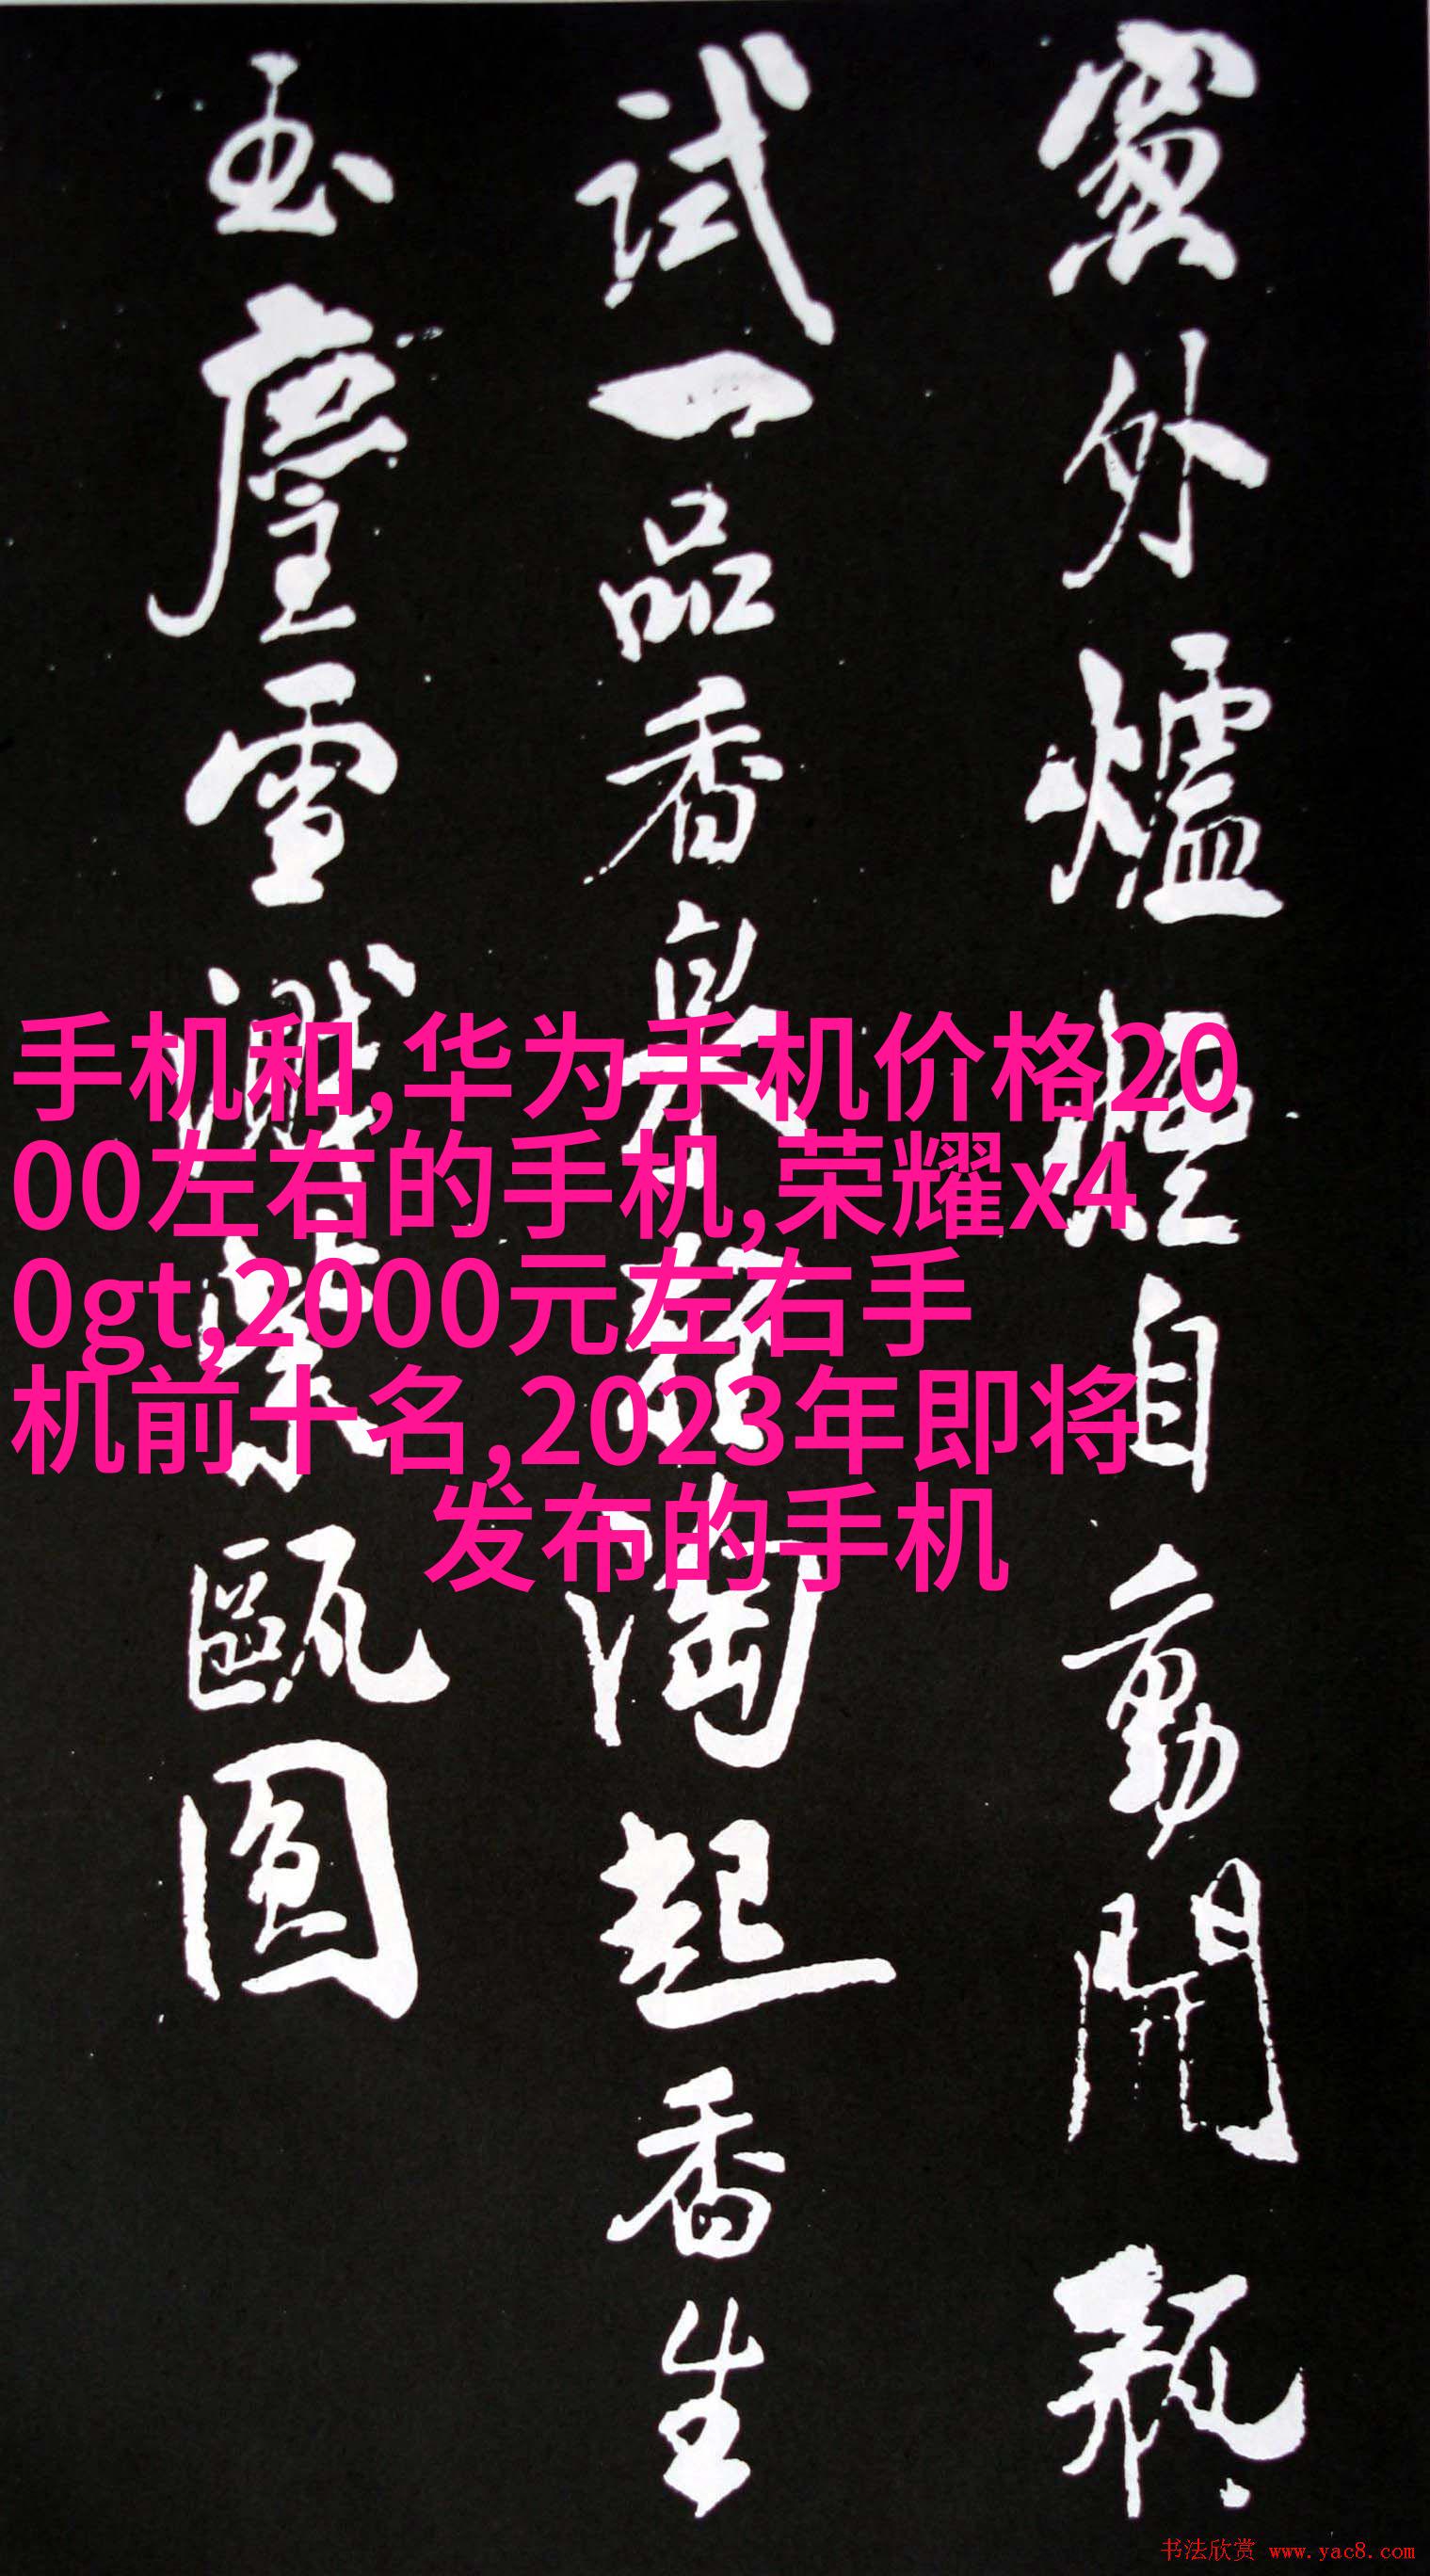 窗外爐煙自動開瓶
试一品香泉轻淘起香生
玉塵雪濺紫甌圓
手机和,华为手机价格20
00左右的手机,荣耀x4
0gt,2000元左右手
机前十名,2023年即将
发布的手机
书法欣赏 www.yac8.com